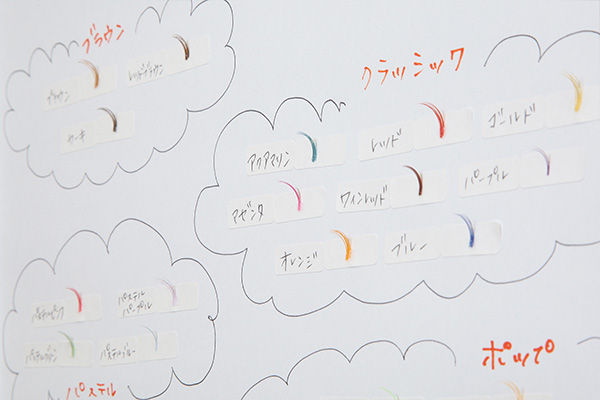 ブラウン
ブラウン
レッドブラウン
カーキ
クラッシック
アクアマリン
レッド
ゴールド
マゼンタ
ワインレッド
パープル
オレンジ
ブルー
パステルピンク
パステル
パープル
パステルグリーン
パステルブルー
パステル
ポップ